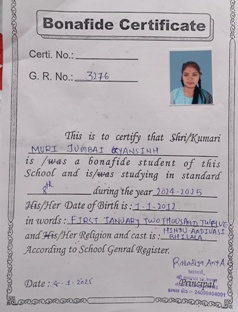 Bonafide Certificate
Certi. No.:
G. R. No.: 3276
This is to certify that Shri/Kumari
MORI JUMBAI GYANSINH
is /was a bonafide student of this
School and is/was studying in standard
8th during the year 2024-2025
His/Her Date of Birth is: 1-1-2012
in words: FIRST JANUARY TWO THOUSAND TWELVE
and His/Her Religion and cast is: HINDU AADIVASI BHILALA
According to School Genral Register.
Date: -1-2025
Principal